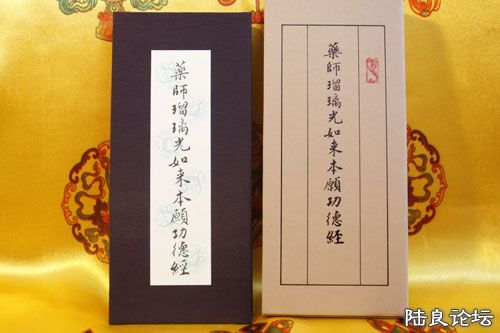 藥師瑠璃光如来本願功德經
藥師瑠璃光如来本願功德經
陆良论坛